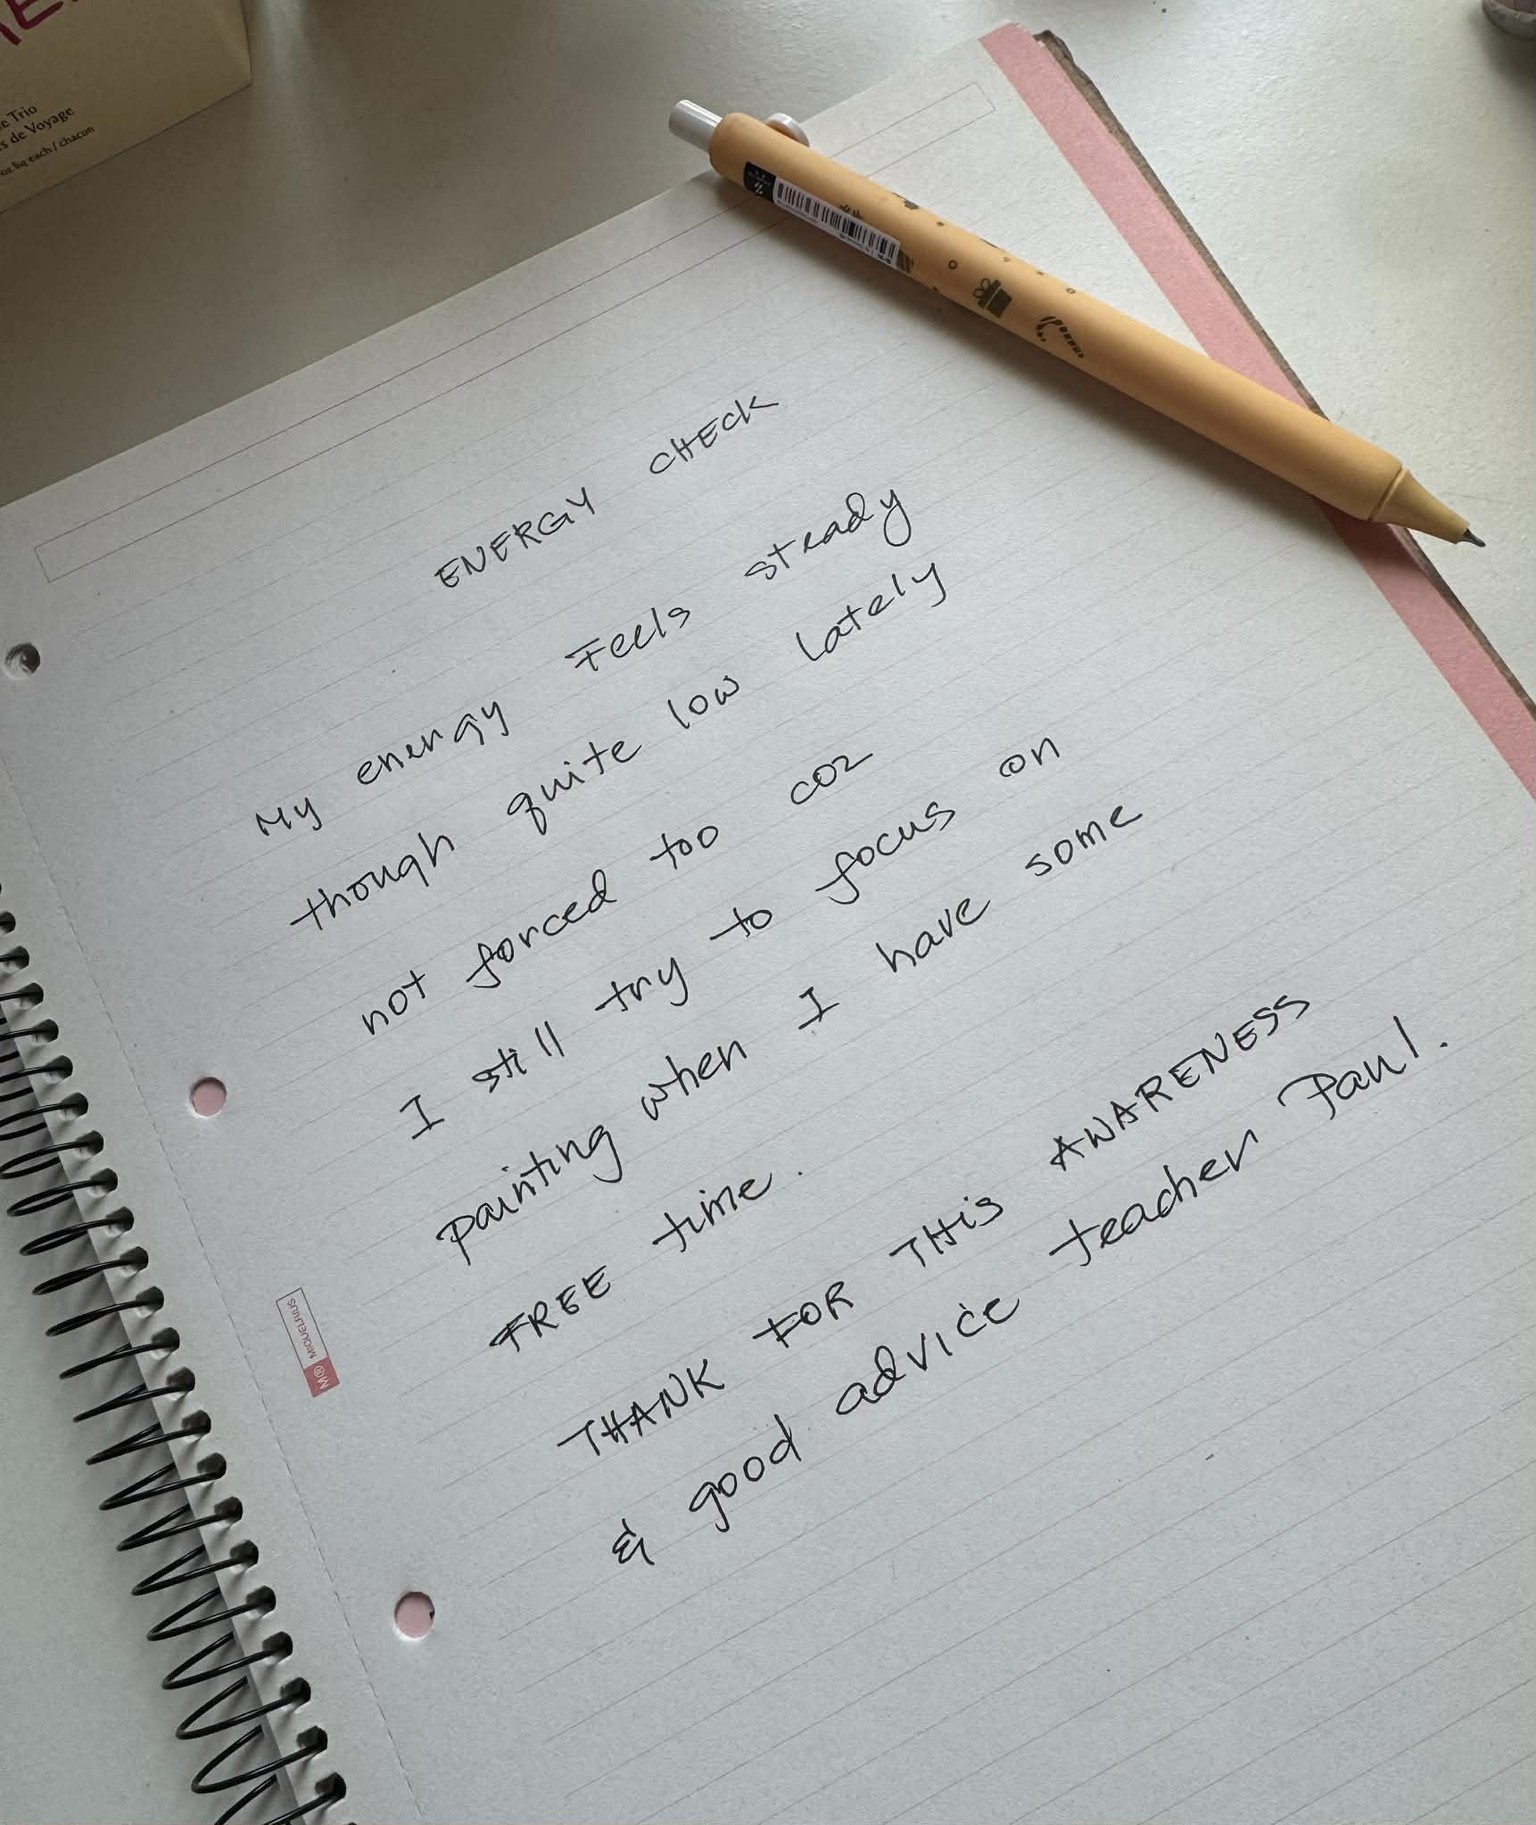 e Trio
s de Voyage
ENERGY CHECK
My energy Feels steady
though quite low lately
not forced too coz
I still try to focus on
painting when I have some
FREE time.
THANK FOR THIS AWARENESS
& good advice teacher Paul.
M® MIQUELRIUS